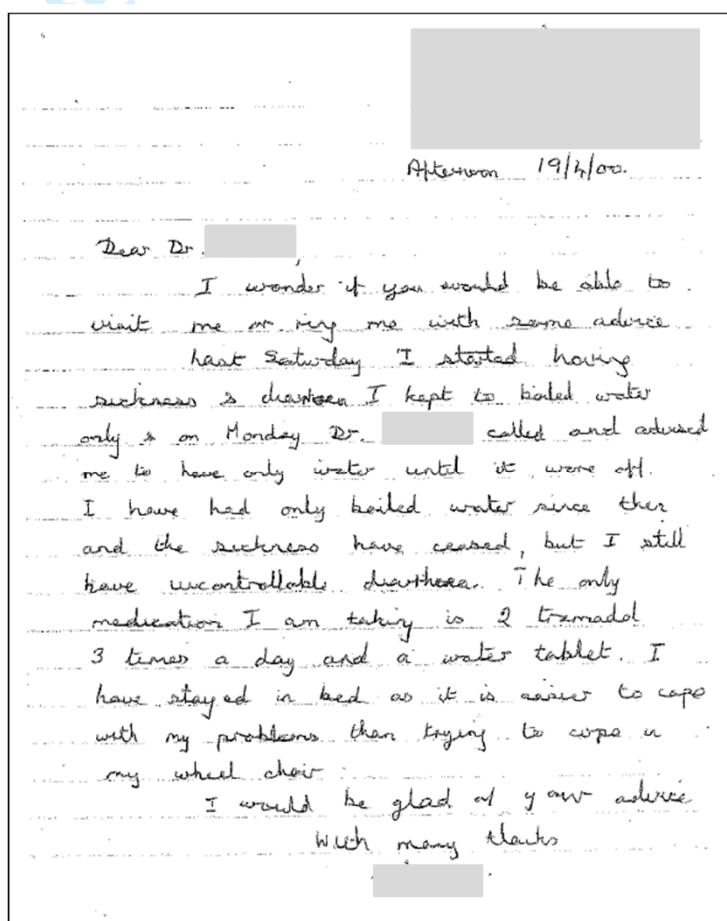 Afternoon 19/4/00.
Dear Dr.
,
I wonder if you would be able to
visit me or ring me with some advice
Last Saturday I started having
sickness & diarrhoea I kept to boiled water
only & on Monday Dr. called and advised
me to have only water until it wore off.
I have had only boiled water since then
and the sickness have ceased, but I still
have uncontrollable diarrhoea. The only
medication I am taking is 2 tramadol
3 times a day and a water tablet. I
have stayed in bed as it is easier to cope
with my problems than trying to cope in
my wheel chair
I would be glad of your advice
With many thanks